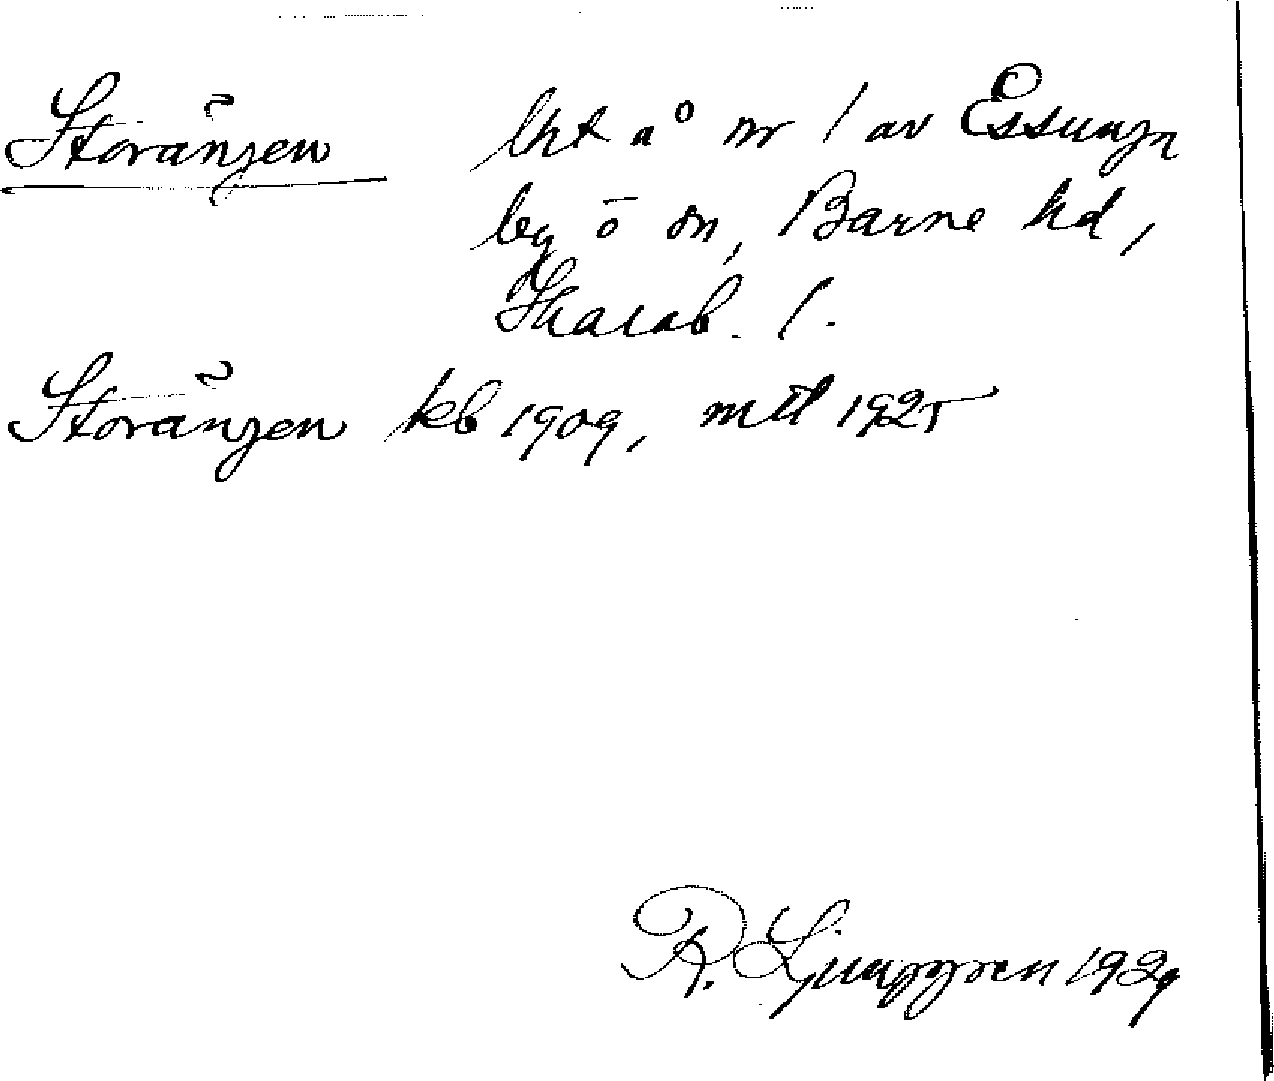 Storängen lht å nr 1 av Essunga
by o sn, Barne hd,
Skarab. l.
Storängen kb 1909, mtl 1925
R. Ljunggren 1929